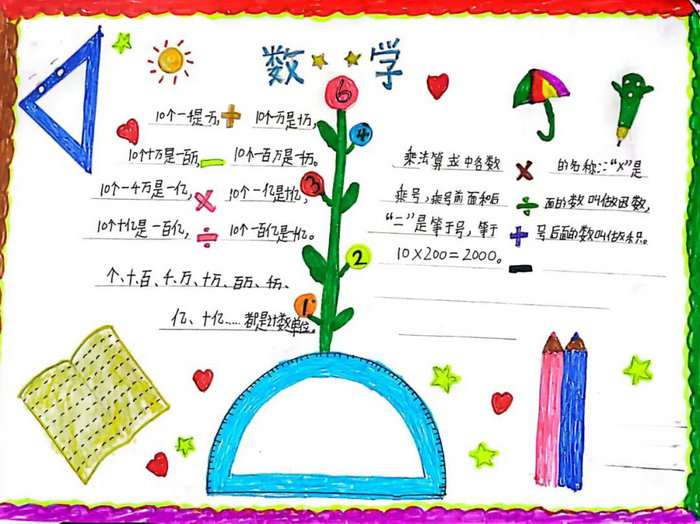 数学
6
4
3
2
1
10个一千是一万, + 10个一万是十万,
10个十万是一百万, − 10个一百万是一千万。
10个一千万是一亿, × 10个一亿是十亿,
10个十亿是一百亿, ÷ 10个一百亿是一千亿。
个、十、百、千、万、十万、百万、千万、
亿、十亿……都是计数单位。
乘法算式中各数 × 的名称:“×”是
乘号,乘号前面和后 ÷ 面的数叫做因数,
“=”是等于号,等于 + 号后面的数叫做积。
10×200=2000。 −